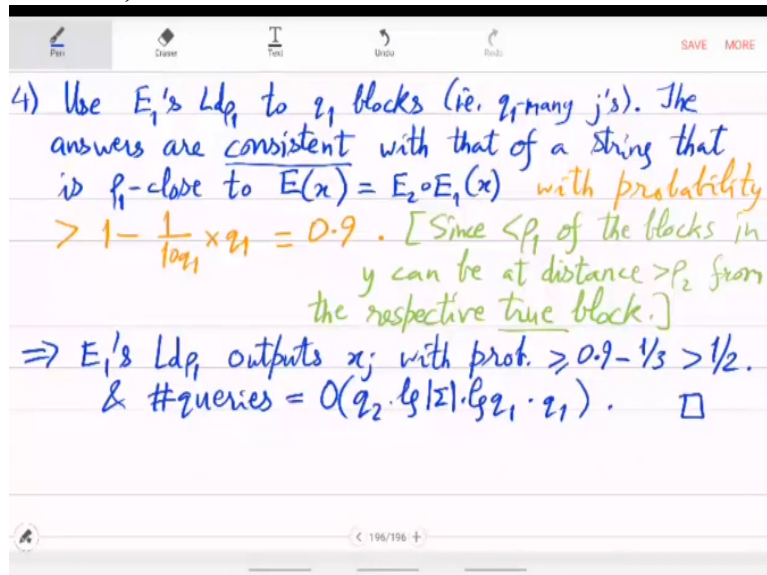 Pen Eraser Text Undo Redo SAVE MORE
4) Use E₁'s Ldp₁ to q₁ blocks (i.e. q₁-many j's). The
answers are consistent with that of a string that
is ρ₁-close to E(x) = E₂∘E₁(x) with probability
> 1 - 1/(10q₁) × q₁ = 0.9 . [Since <ρ₁ of the blocks in
y can be at distance >ρ₂ from
the respective true block.]
⇒ E₁'s Ldρ₁ outputs xⱼ with prob. ≥ 0.9 - 1/3 > 1/2.
& #queries = O(q₂·lg|Σ|·lgq₁·q₁). □
< 196/196 +